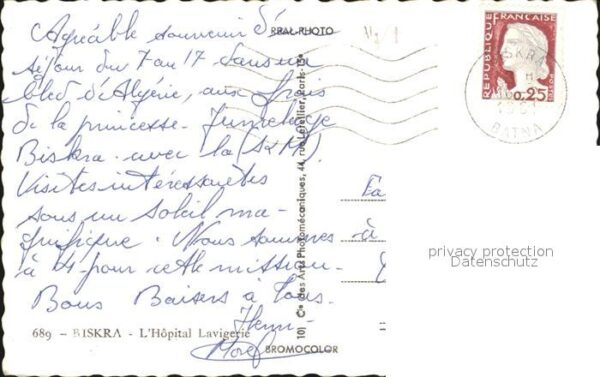 REAL-PHOTO
Agréable souvenir d'
séjour du 7 au 17 dans un
bled d'Algérie, aux frais
de la princesse. Jumelage
Biskra avec la (S&M)
Visites intéressantes
sous un soleil ma-
gnifique. Nous sommes à
à 4 pour cette mission.
Bons Baisers à tous.
Henri
689 - BISKRA - L'Hôpital Lavigerie
BROMOCOLOR
10) Cie des Arts Photomécaniques, 44, rue Letellier, Paris-15e
REPUBLIQUE FRANÇAISE
POSTES
0,25
BISKRA
BATNA
privacy protection
Datenschutz